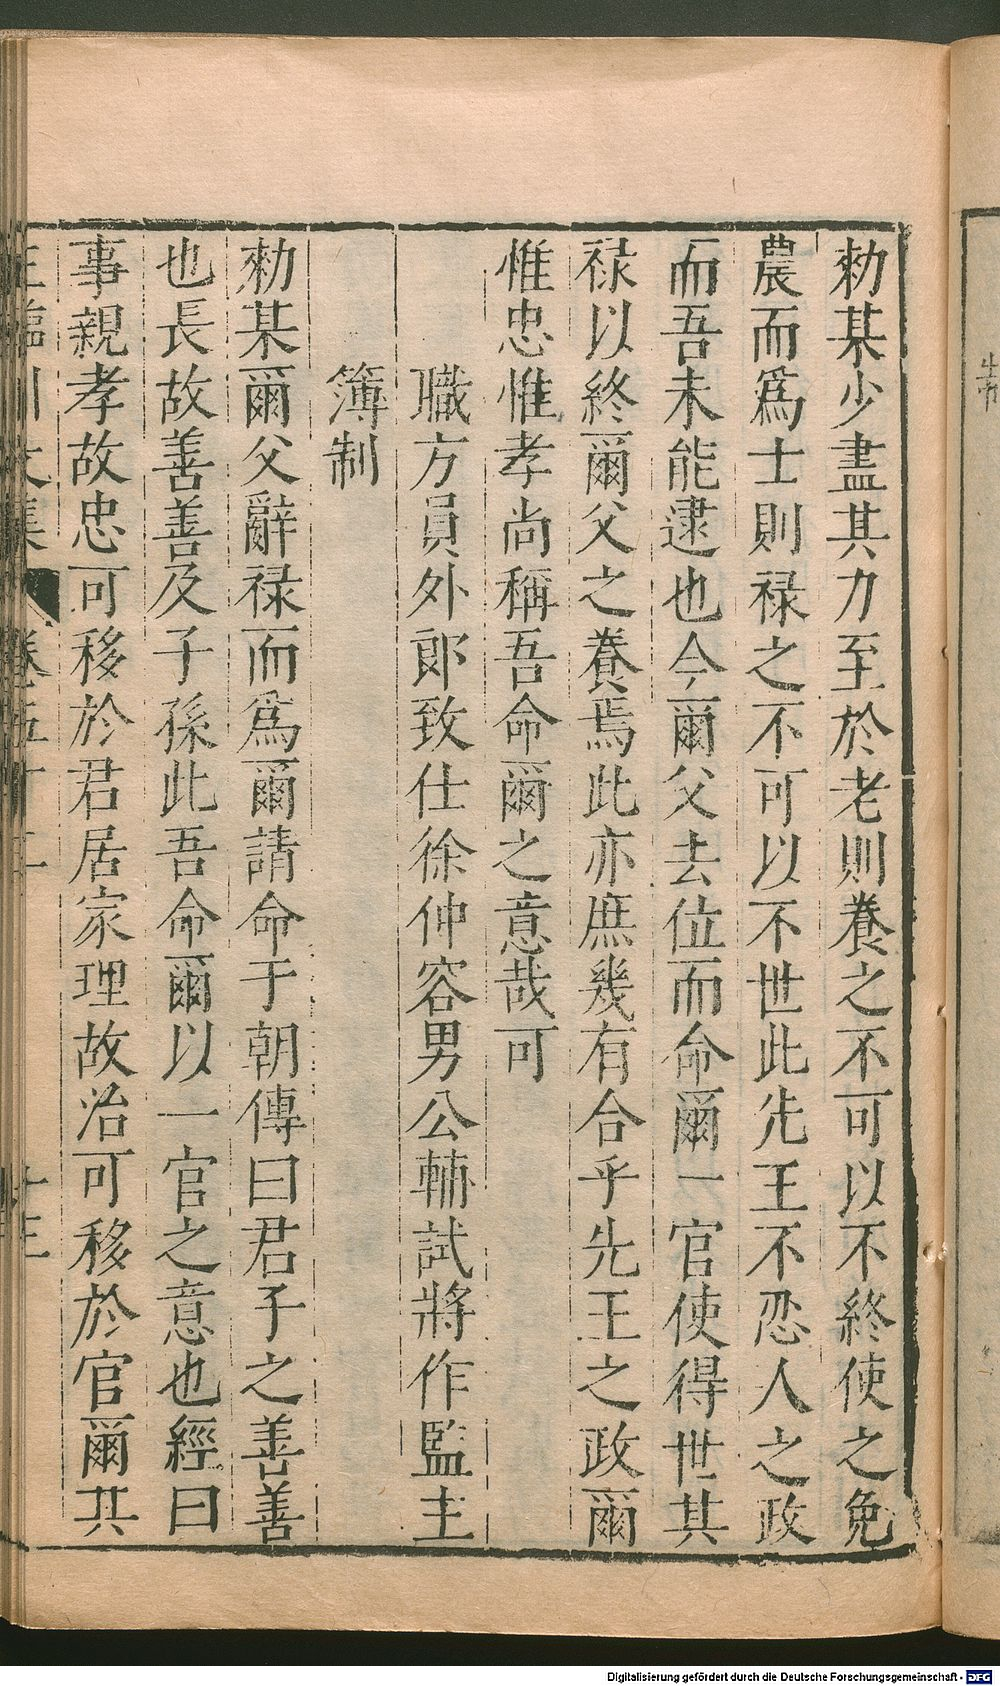 勑某少盡其力至於老則養之不可以不終使之免
農而爲士則祿之不可以不世此先王不忍人之政
而吾未能逮也今爾父去位而命爾一官使得世其
祿以終爾父之養焉此亦庶幾有合乎先王之政爾
惟忠惟孝尚稱吾命爾之意哉可
職方員外郎致仕徐仲容男公輔試將作監主
簿制
勑某爾父辭祿而爲爾請命于朝傳曰君子之善善
也長故善善及子孫此吾命爾以一官之意也經曰
事親孝故忠可移於君居家理故治可移於官爾其
王臨川文集 卷五十二 十三
制
Digitalisierung gefördert durch die Deutsche Forschungsgemeinschaft - DFG